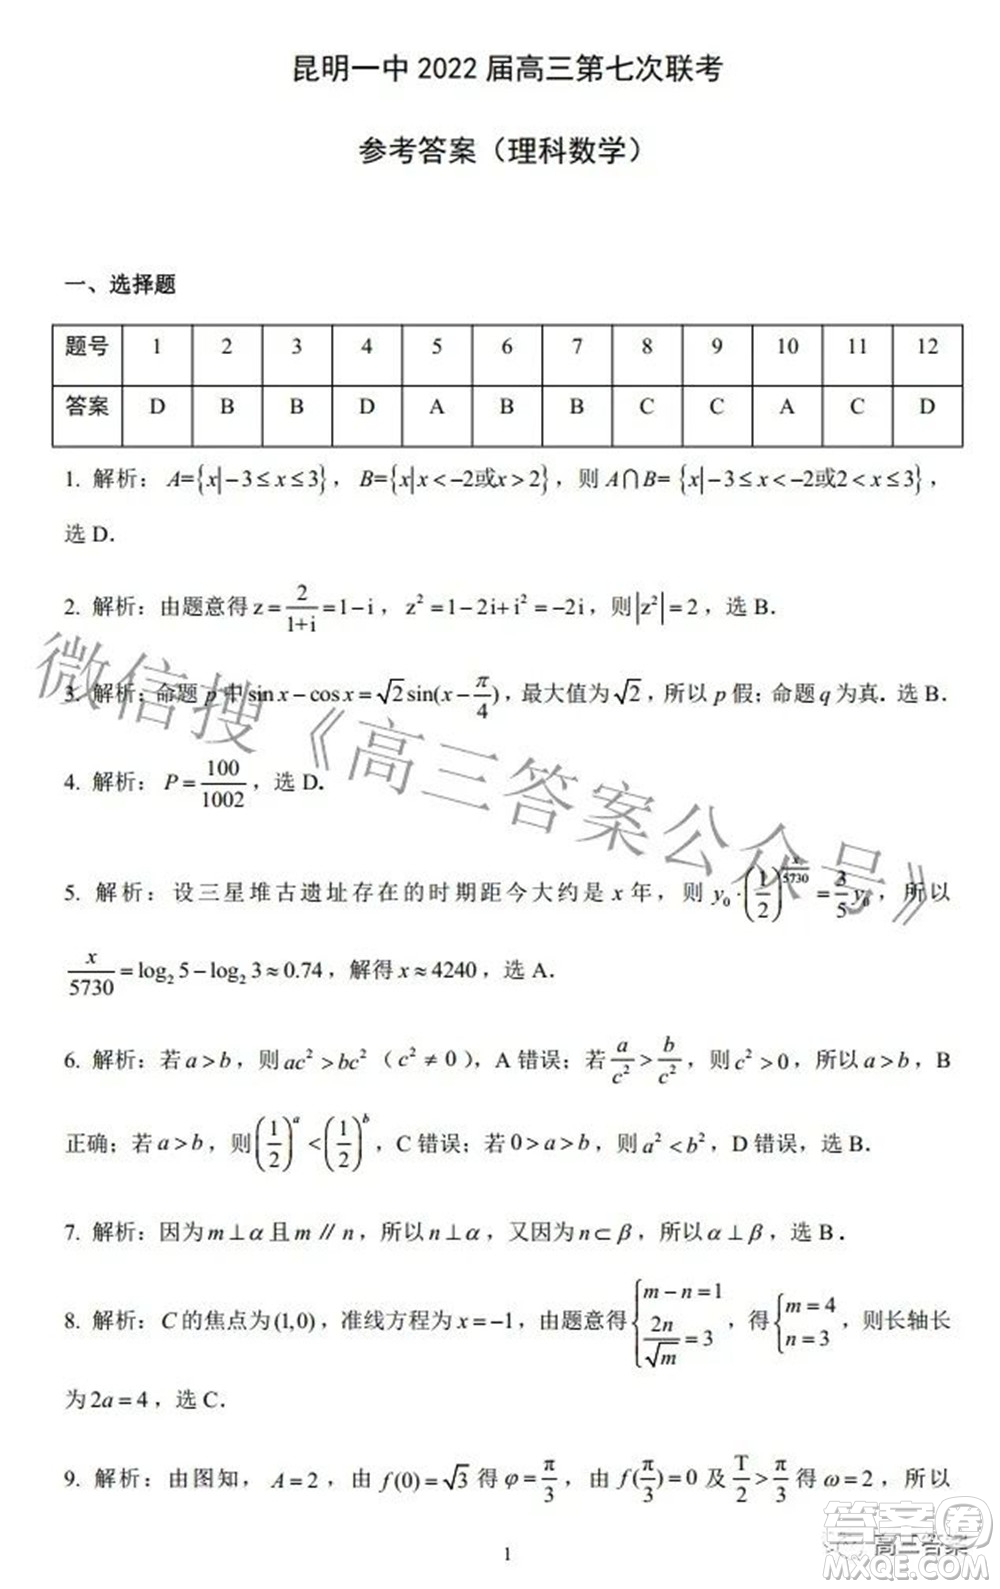 昆明一中 2022 届高三第七次联考
参考答案（理科数学）
一、选择题
题号 1 2 3 4 5 6 7 8 9 10 11 12
答案 D B B D A B B C C A C D
1. 解析：A={x|−3≤x≤3}，B={x|x<−2或x>2}，则 A∩B= {x|−3≤x<−2或2<x≤3}，
选 D．
2. 解析：由题意得 z=2/(1+i)=1−i，z²=1−2i+i²=−2i，则|z²|=2，选 B．
3. 解析：命题 p 中 sin x−cos x=√2sin(x−π/4)，最大值为√2，所以 p 假；命题 q 为真．选 B．
4. 解析：P=100/1002，选 D．
5. 解析：设三星堆古遗址存在的时期距今大约是 x 年，则 y₀·(1/2)^(x/5730)=3/5 y₀，所以
x/5730=log₂5−log₂3≈0.74，解得 x≈4240，选 A．
6. 解析：若 a>b，则 ac²>bc²（c²≠0），A 错误；若 a/c²>b/c²，则 c²>0，所以 a>b，B
正确；若 a>b，则(1/2)^a<(1/2)^b，C 错误；若 0>a>b，则 a²<b²，D 错误，选 B．
7. 解析：因为 m⊥α 且 m∥n，所以 n⊥α，又因为 n⊂β，所以 α⊥β，选 B．
8. 解析：C 的焦点为(1,0)，准线方程为 x=−1，由题意得{m−n=1, 2n/√m=3，得{m=4, n=3，则长轴长
为 2a=4，选 C．
9. 解析：由图知，A=2，由 f(0)=√3 得 φ=π/3，由 f(π/3)=0 及 T/2>π/3 得 ω=2，所以
1
微信搜《高三答案公众号》
答案圈
MXQE.COM
高三答案